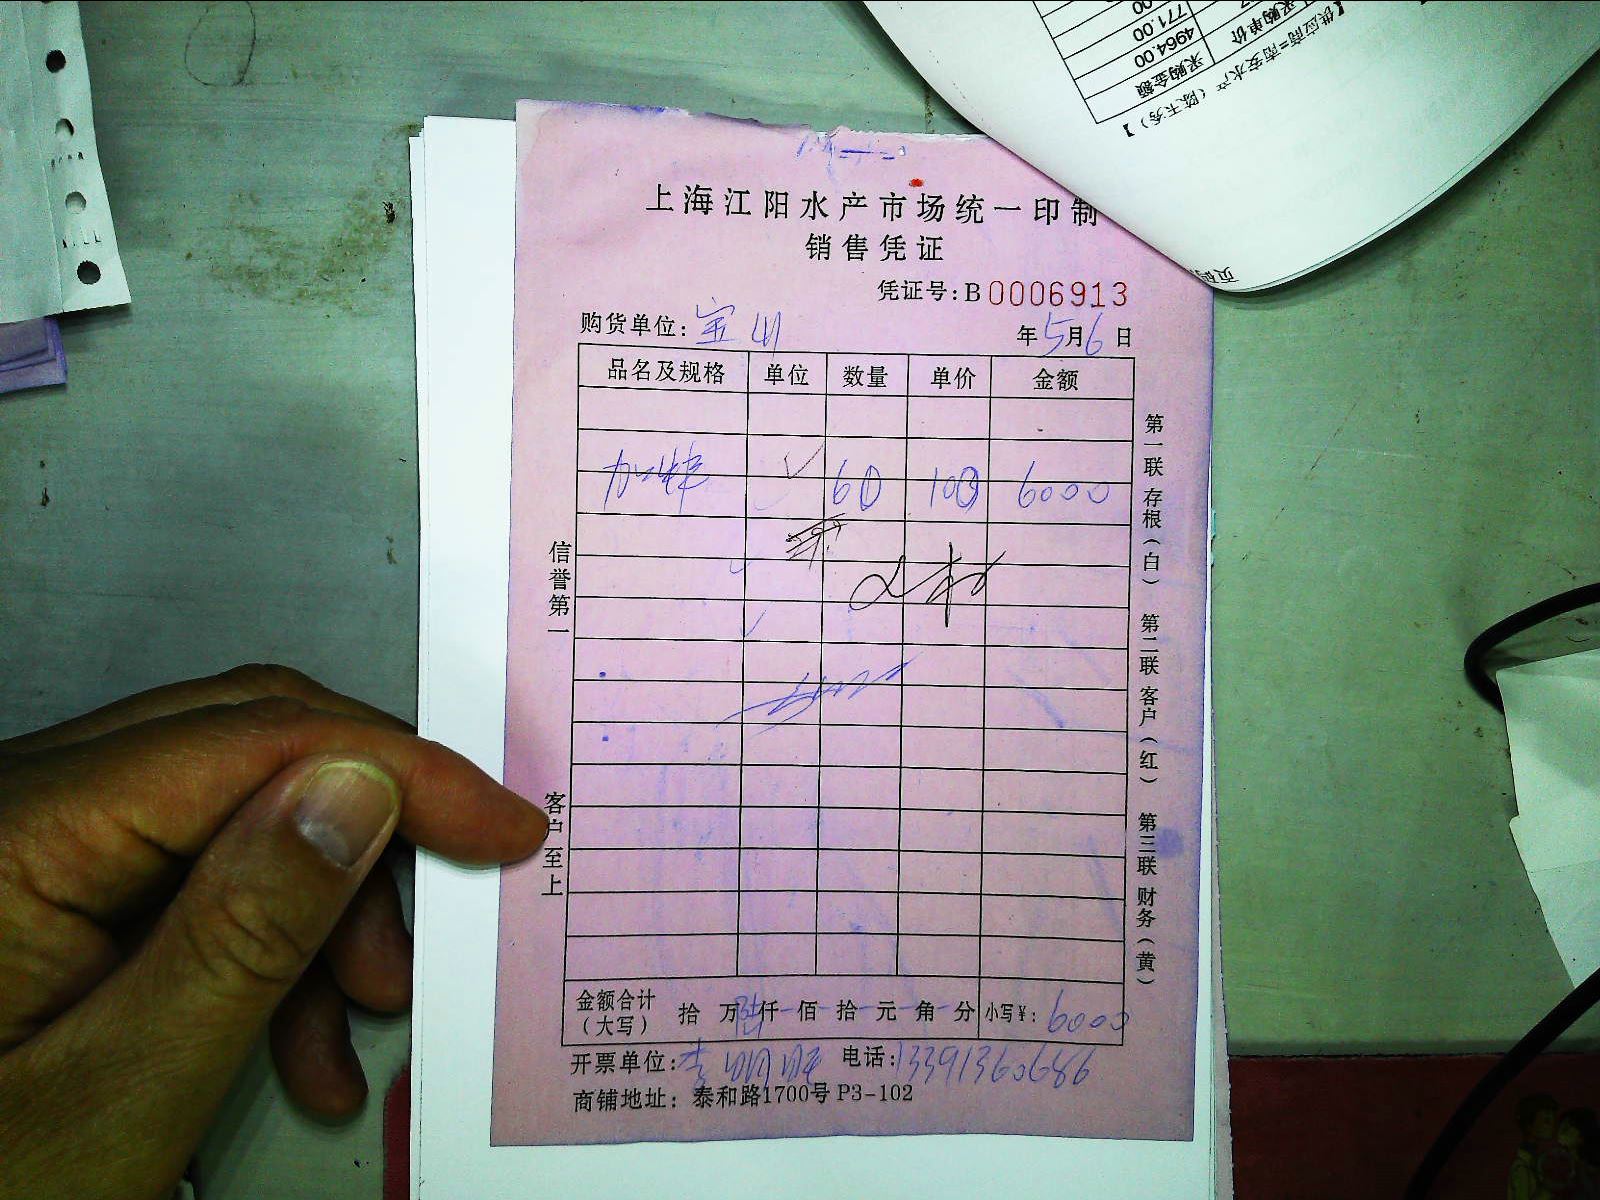 上海江阳水产市场统一印制
销售凭证
凭证号:B0006913
购货单位: 宝山 年5月6日
品名及规格 单位 数量 单价 金额
60 100 6000
信誉第一
客户至上
第一联 存根(白) 第二联 客户(红) 第三联 财务(黄)
金额合计(大写) 拾 万陆仟-佰-拾-元-角-分 小写¥: 6000
开票单位: 李明旺 电话:13391360686
商铺地址: 泰和路1700号 P3-102
【供应商=南安水产(陈天秀)】
采购单价 采购金额
4964.00
771.00
页码